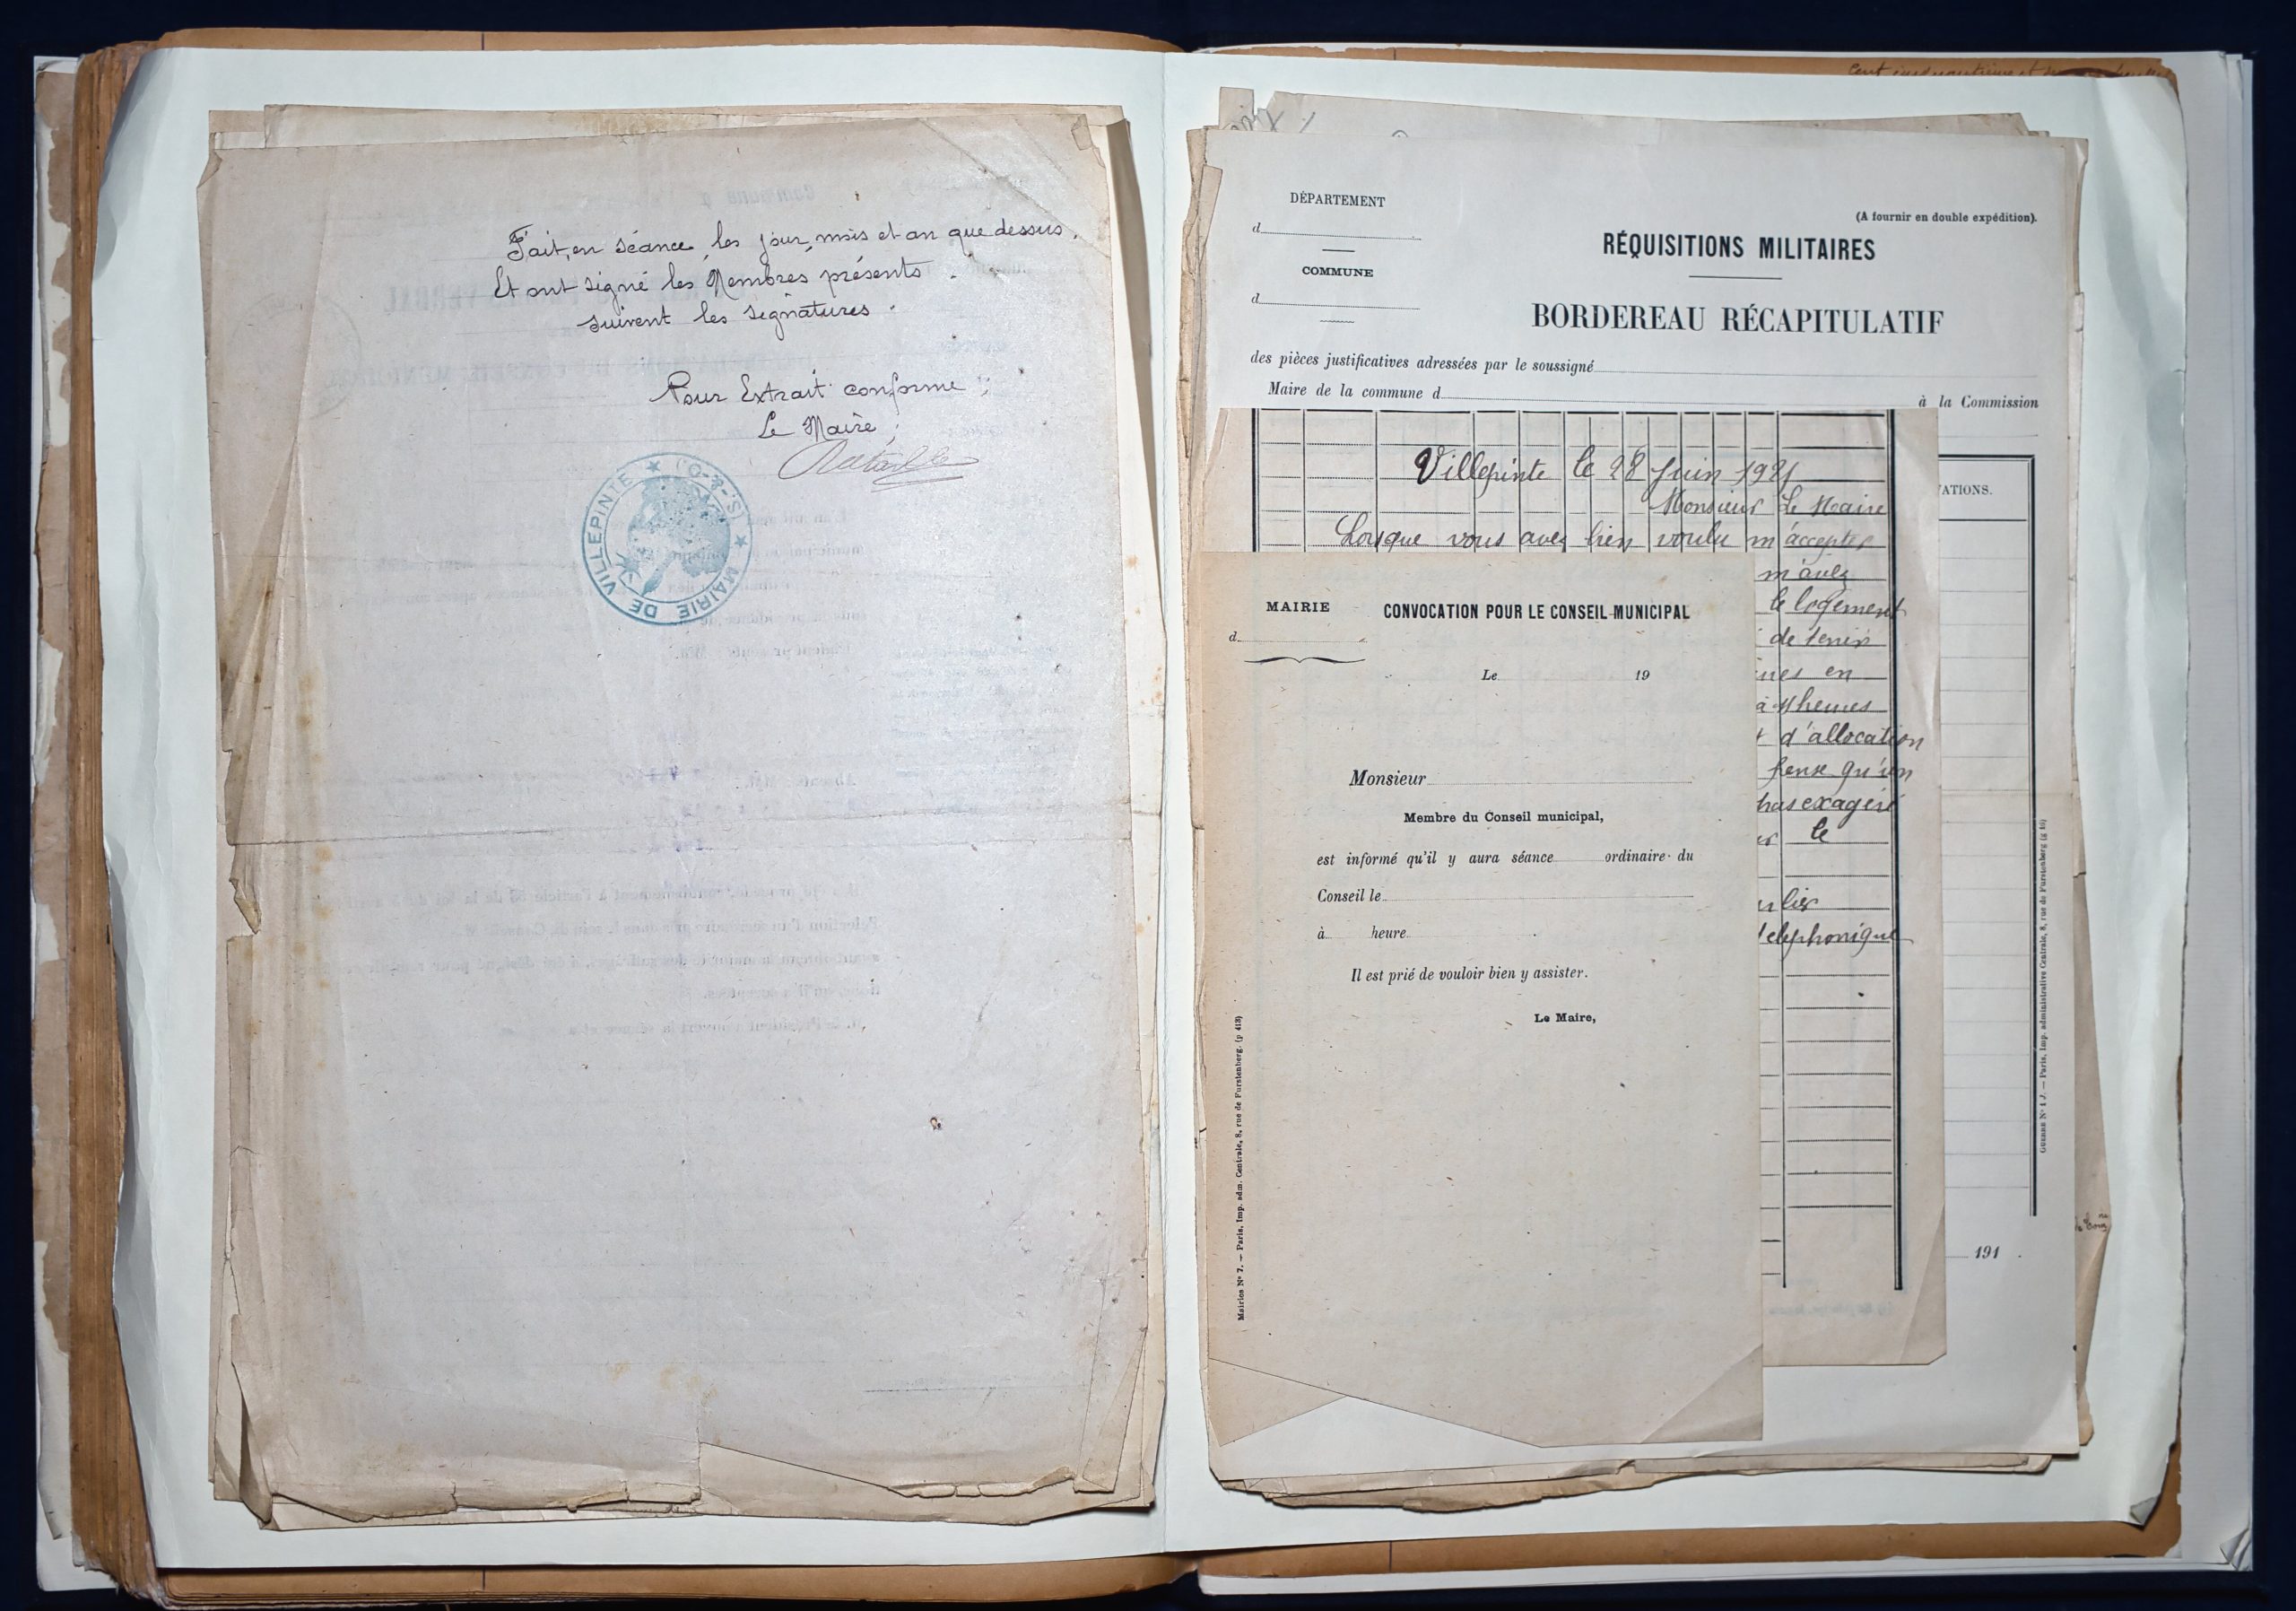 Fait, en séance, les jour, mois et an que dessus.
Et ont signé les Membres présents.
suivent les signatures.
Pour Extrait conforme :
Le Maire,
MAIRIE DE VILLEPINTE ★ (S.-&-O.) ★
DÉPARTEMENT
d
COMMUNE
d
(A fournir en double expédition).
RÉQUISITIONS MILITAIRES
BORDEREAU RÉCAPITULATIF
des pièces justificatives adressées par le soussigné
Maire de la commune d
à la Commission
ATIONS.
191
GUERRE N° 1 J. — Paris, Imp. administrative Centrale, 8, rue de Furstenberg (g 46)
Villepinte le 28 Juin 1921
Monsieur Le Maire
Lorsque vous avez bien voulu m'accepter
m'avez
le logement
de tenir
en
à heures
d'allocation
pense qu'un
pas exagéré
le
telephonique
MAIRIE
d
CONVOCATION POUR LE CONSEIL MUNICIPAL
Le 19
Monsieur
Membre du Conseil municipal,
est informé qu'il y aura séance ordinaire du
Conseil le
à heure
Il est prié de vouloir bien y assister.
Le Maire,
Mairies N° 7. — Paris, Imp. adm. Centrale, 8, rue de Furstenberg. (p 413)